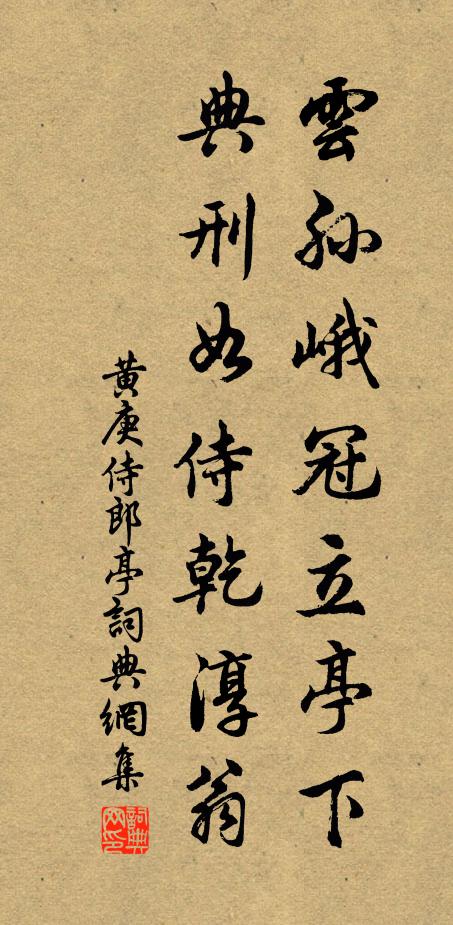 雲孫峨冠立亭下
典刑如侍乾淳翁
黃庚侍郎亭詞典網集
詞典網印